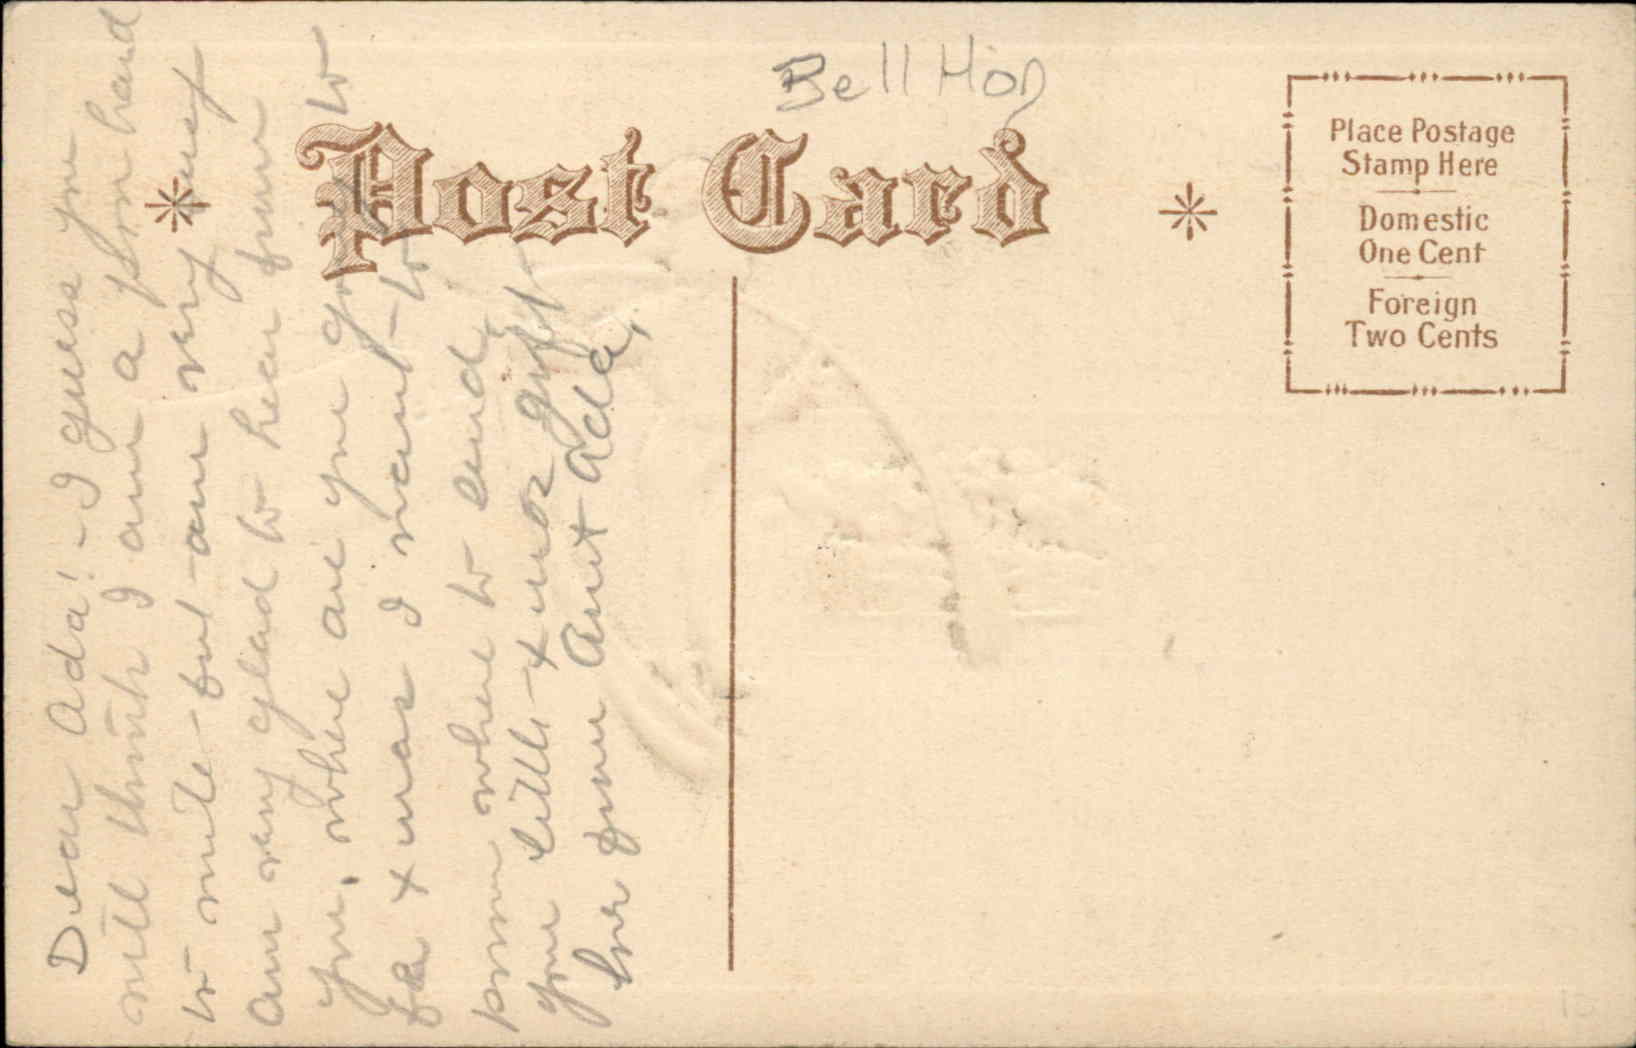 Bell Hop
Post Card
Place Postage
Stamp Here
Domestic
One Cent
Foreign
Two Cents
Dear Ada! - I guess you
will think I am a poor hand
to write - but am very busy
Am very glad to hear from
you. where are you going to
be Xmas I want - to
know where to send
your little Xmas gift
love from Aunt Ada,